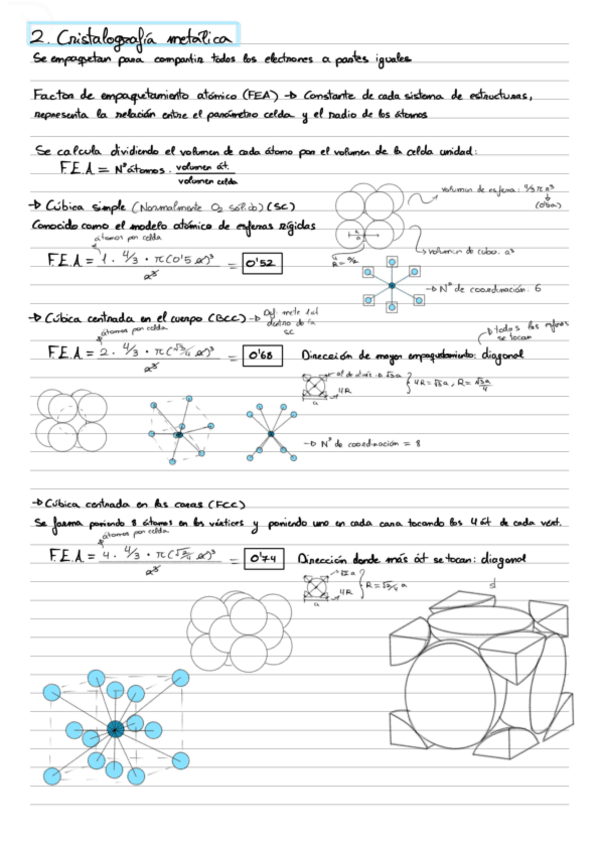 2. Cristalografía metálica
Se empaquetan para compartir todos los electrones a partes iguales
Factor de empaquetamiento atómico (FEA) → Constante de cada sistema de estructuras,
representa la relación entre el parámetro celda y el radio de los átomos
Se calcula dividiendo el volumen de cada átomo por el volumen de la celda unidad:
F.E.A = Nº átomos · volumen át. / volumen celda
volumen de esfera: 4/3 π r³
(0'5a)
→ Cúbica simple (Normalmente O₂ sólido) (SC)
Conocido como el modelo atómico de esferas rígidas
átomos por celda
F.E.A = 1 · 4/3 · π(0'5 a)³ / a³ = 0'52
a
R = a/2
→ volumen de cubo: a³
→ Nº de coordinación: 6
→ Cúbica centrada en el cuerpo (BCC) → mete 1 át dentro de la SC
átomos por celda
→ todas las esferas se tocan
F.E.A = 2 · 4/3 · π(√3/4 a)³ / a³ = 0'68
Dirección de mayor empaquetamiento: diagonal
√3a
4R
a
4R = √3a, R = √3a/4
→ Nº de coordinación = 8
→ Cúbica centrada en las caras (FCC)
Se forma poniendo 8 átomos en los vértices y poniendo uno en cada cara tocando los 4 át de cada vert.
átomos por celda
F.E.A = 4 · 4/3 · π(√2/4 a)³ / a³ = 0'74
Dirección donde más át se tocan: diagonal
√2a
4R
a